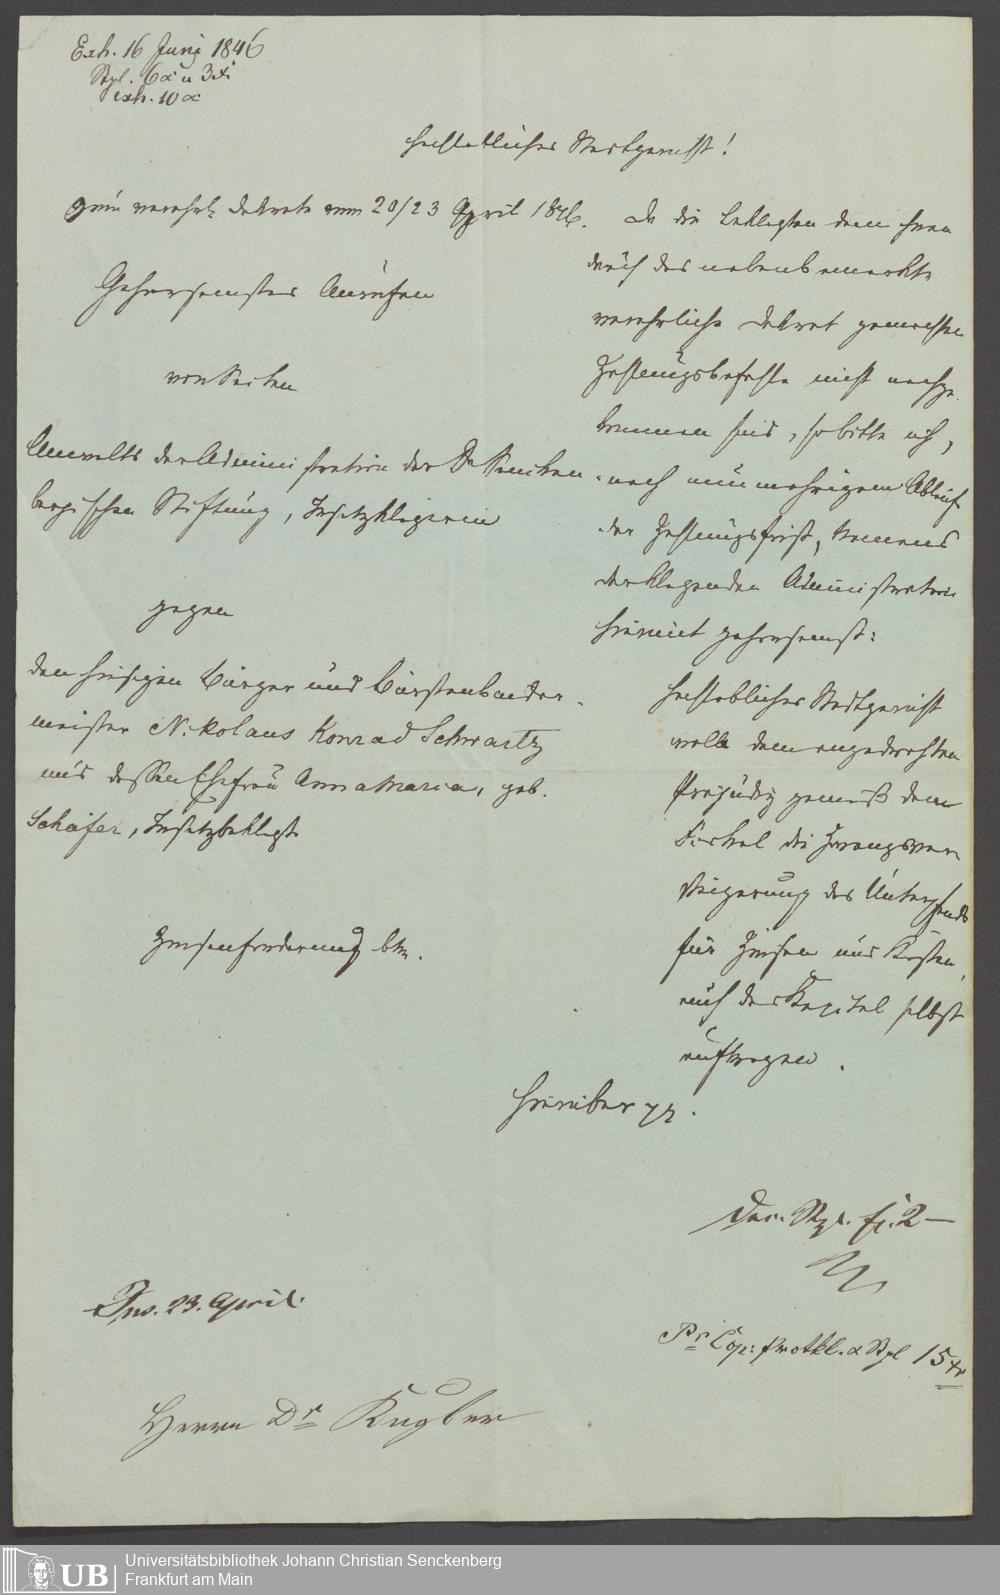 Exh. 16 Juni 1846
Stpl. 6x u 3x
exh. 10x
Hochlöbliches Stadtgericht!
zum verehrl. Dekrete vom 20/23 April 1846.
Gehorsamstes Anrufen
von Seiten
Anwalts der Administration der Dr Sencken-
bergischen Stiftung, Insatzklägerin
gegen
den hiesigen Bürger und Bürstenbinder-
meister Nikolaus Konrad Schwartz
und dessen Ehefrau Anna Maria, geb.
Schäfer, Insatzbeklagte
Zinsenforderung btr.
Da die Beklagten dem ihnen
durch das nebenbemerkte
verehrliche Dekret gemachten
Zahlungsbefehle nicht nachge-
kommen sind, so bitte ich,
nach nunmehrigem Ablauf
der Zahlungsfrist, Namens
der klagenden Administration
hiermit gehorsamst:
Hochlöbliches Stadtgericht
wolle dem angedrohten
Präjudiz gemäß dem
Fiskal die Zwangsver-
steigerung des Unterpfands
für Zinsen und Kosten,
auch das Kapital selbst
auftragen.
Hierüber pp.
Des. Stpl. fl. 2 —
Ins. 23. April.
Pr Cop: protkl. & Stpl 15 xr
Herrn Dr Kugler
UB
Universitätsbibliothek Johann Christian Senckenberg
Frankfurt am Main